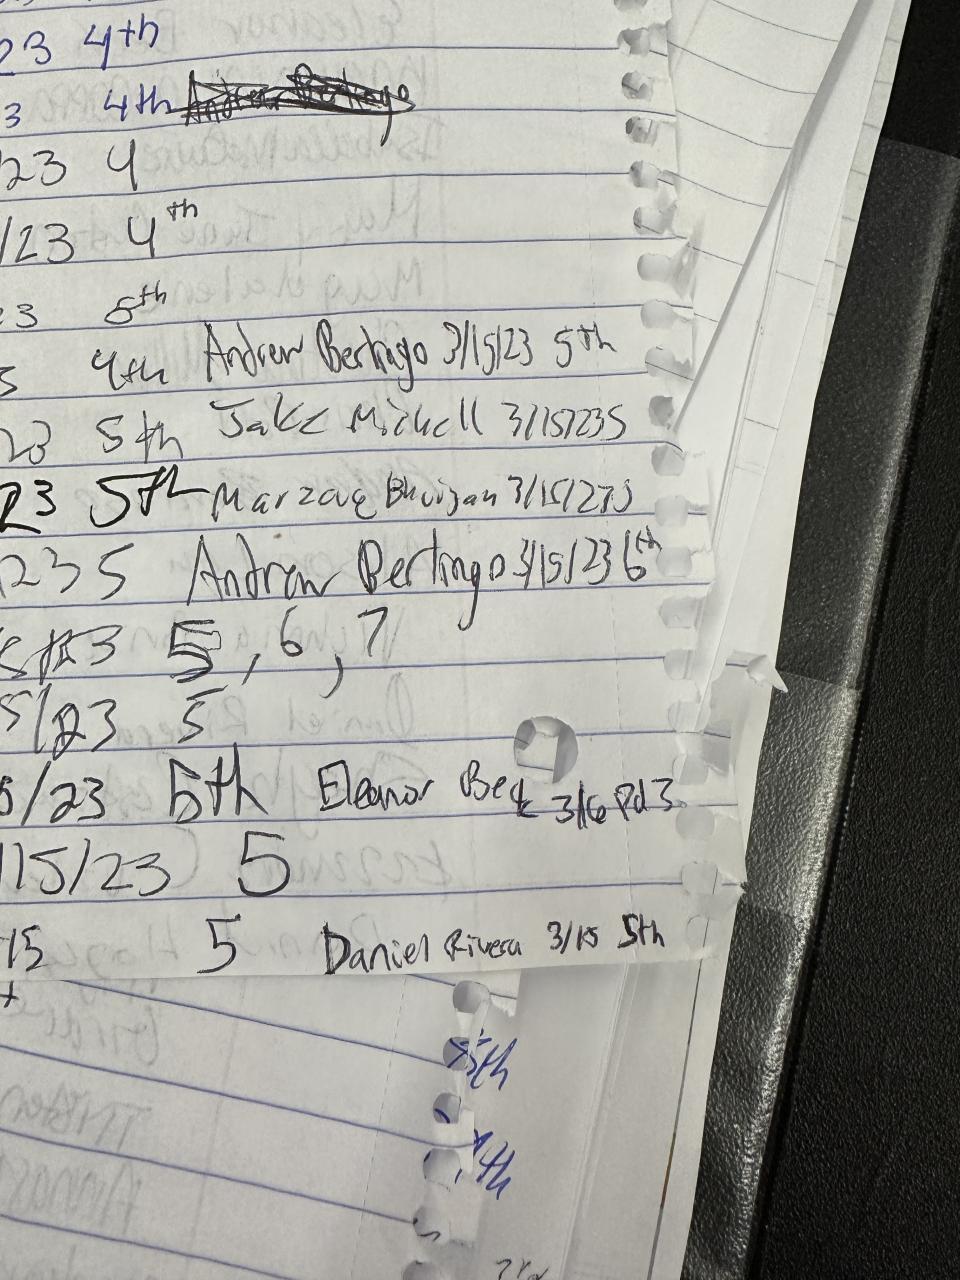 23 4th
3 4th Andrew Bertingo
23 4
/23 4th
3 5th
4th Andrew Bertingo 3/15/23 5th
23 5th Jake Mitchell 3/15/23 5
23 5th Marzouq Bhuiyan 3/15/23 5
23 5 Andrew Bertingo 3/15/23 6th
23 5, 6, 7
5/23 5
5/23 5th Eleanor Beck 3/16 Pd 3
/15/23 5
15 5 Daniel Rivera 3/15 5th
5th
7th